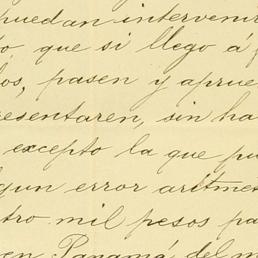 puedan intervenir
o que si llego á f
los, pasen y aprue
resentaren, sin ha
excepto la que pu
lgun error aritmet
tro mil pesos pa
en Panamá, del m